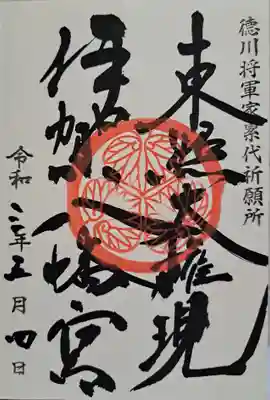 徳川将軍家累代祈願所
東照大権現
伊賀八幡宮
令和二年五月四日